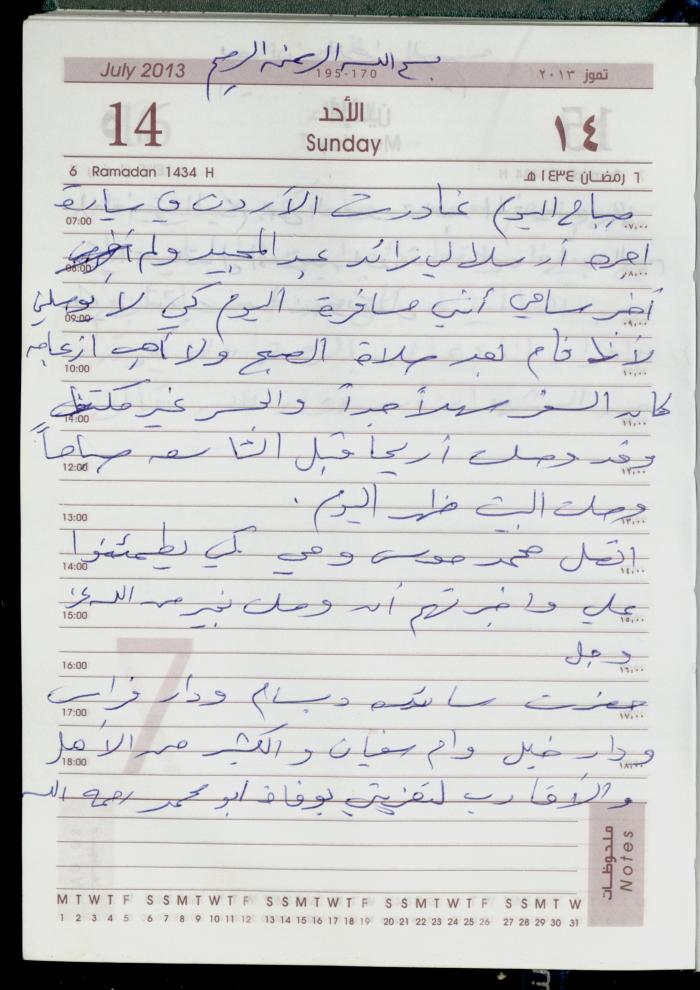 بسم الله الرحمن الرحيم
July 2013 195-170 تموز ٢٠١٣
14 الأحد ١٤
Sunday
6 Ramadan 1434 H ٦ رمضان ١٤٣٤ هـ
صباح اليوم غادرت الأردن في سيارة
07:00 ٠٧,٠٠
اجره أرسلها لي رائد عبد المجيد ولم
08:00 ٠٨,٠٠
أخبر سامي أنني مسافرة اليوم كي لا يوصلني
09:00 ٠٩,٠٠
لأنه نام بعد صلاة الصبح ولا أحب ازعاجه
10:00 ١٠,٠٠
كان السفر سهلاً جداً والجسر غير مكتظ
11:00 ١١,٠٠
وقد وصلت أريحا قبل التاسعه صباحاً
12:00 ١٢,٠٠
وصلت البيت ظهر اليوم .
13:00 ١٣,٠٠
اتصل محمد موسى ومي كي يطمئنوا
14:00 ١٤,٠٠
علي واخبرتهم أني وصلت بخير من الله عز
15:00 ١٥,٠٠
وجل
16:00 ١٦,٠٠
حضرت ودار فراس
17:00 ١٧,٠٠
ودار خليل وام سفيان والكثير من الأهل
18:00 ١٨,٠٠
والأقارب لتعزيتي بوفاة ابو محمد رحمه الله
7
ملحوظات
Notes
M T W T F S S M T W T F S S M T W T F S S M T W T F S S M T W
1 2 3 4 5 6 7 8 9 10 11 12 13 14 15 16 17 18 19 20 21 22 23 24 25 26 27 28 29 30 31